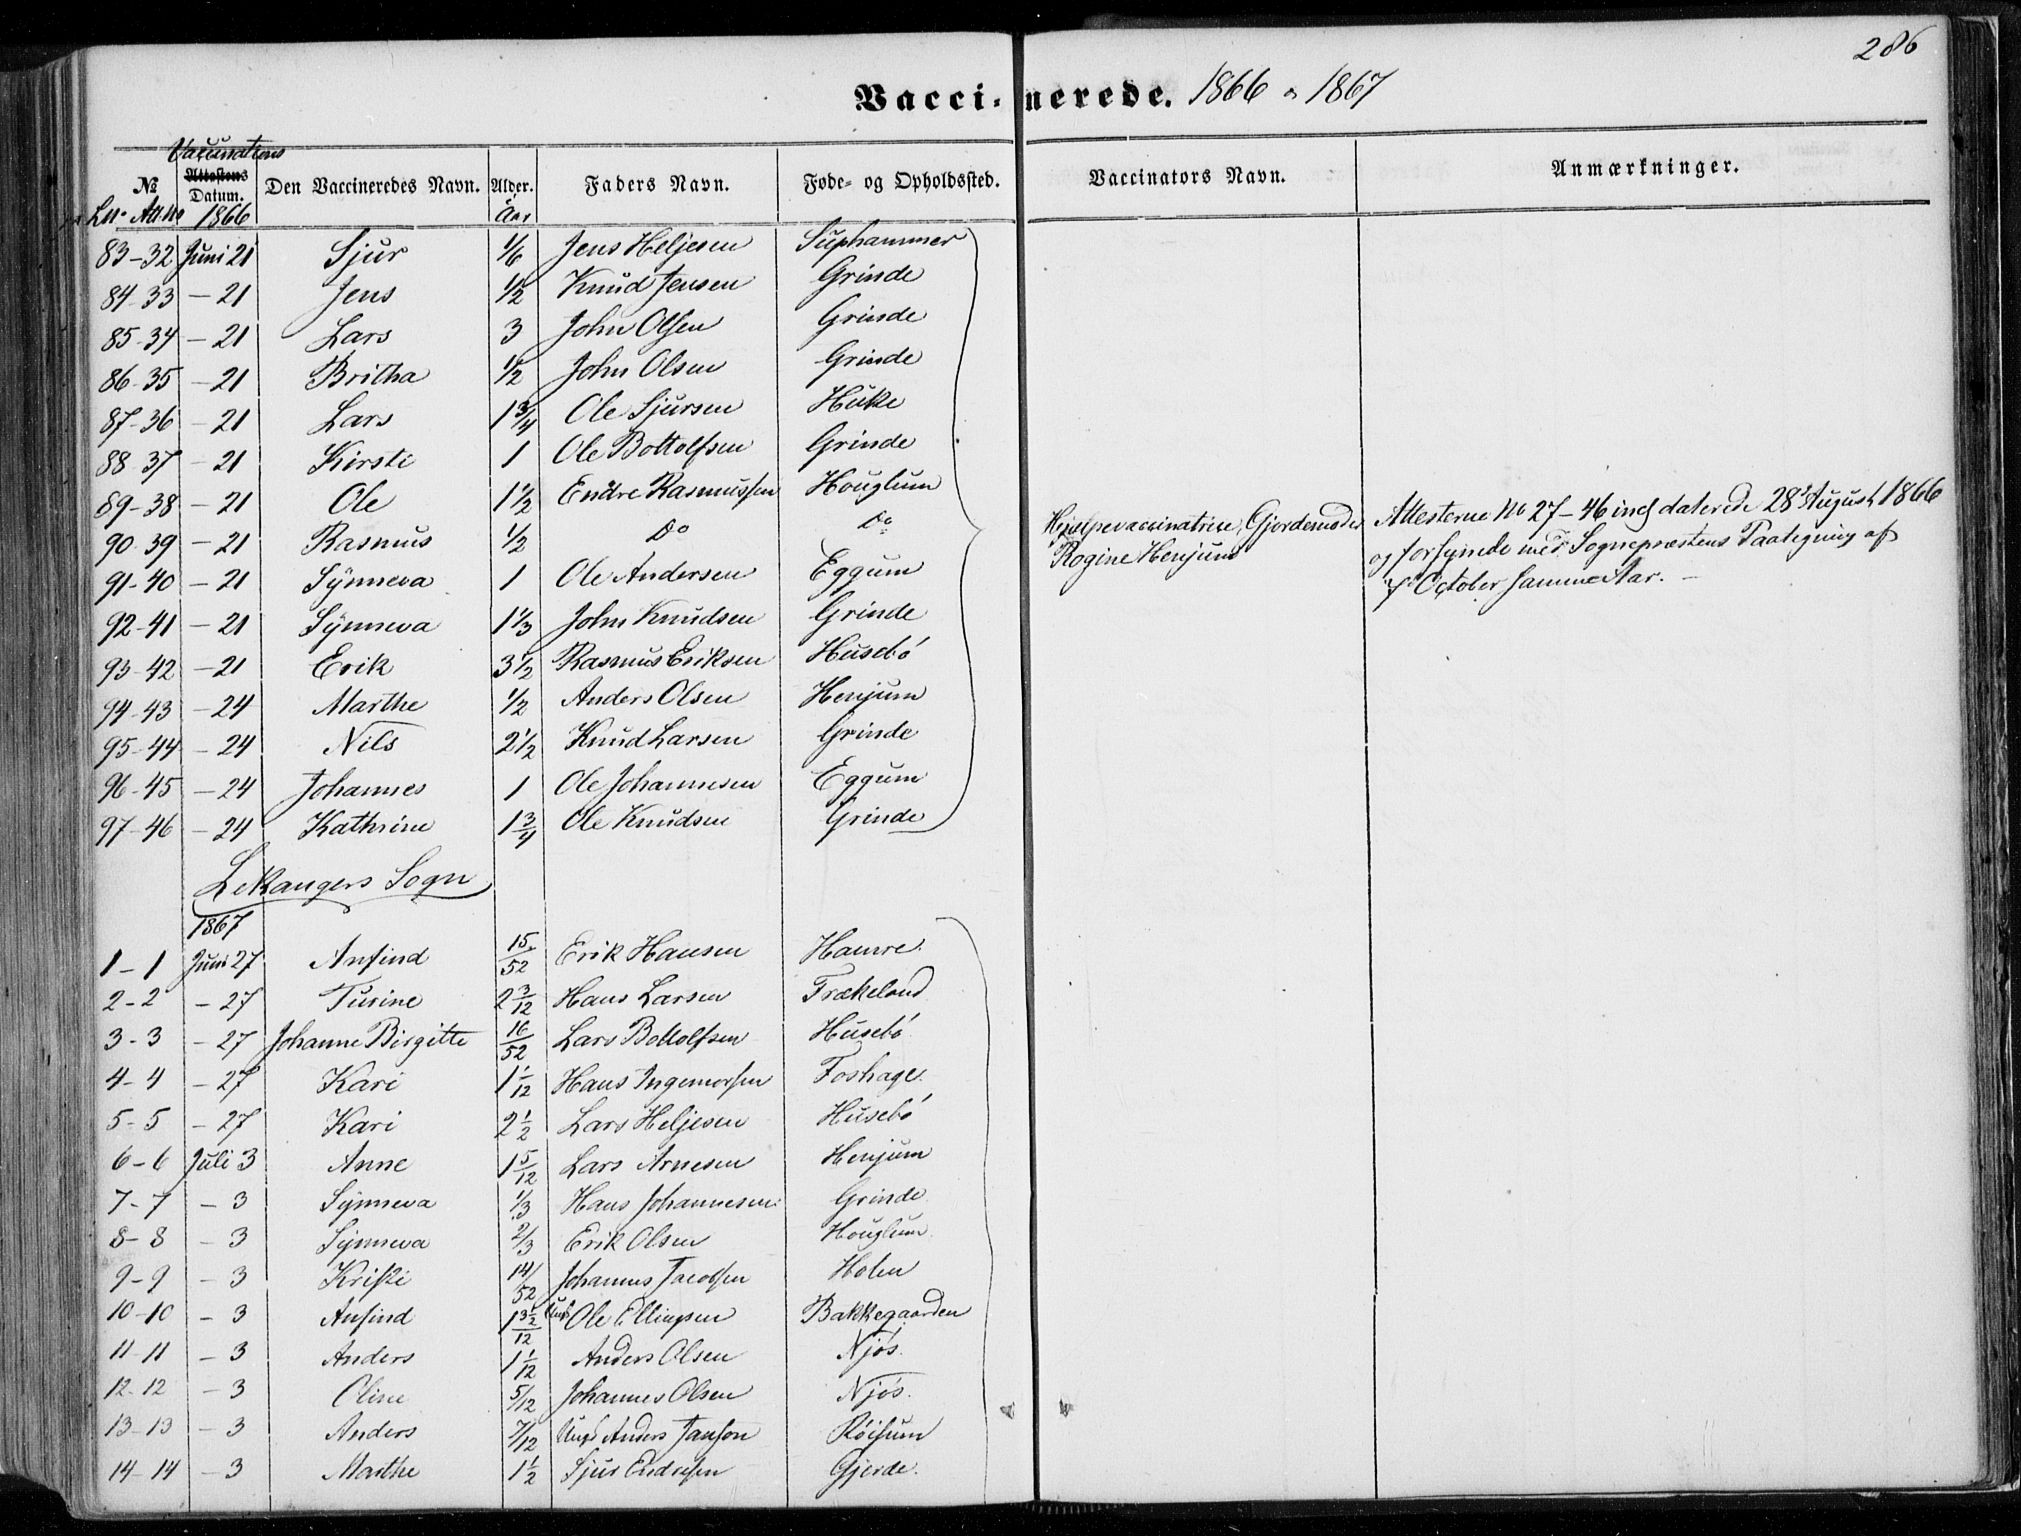 286
Vacci-nerede. 1866 & 1867
Vaccinations
№ Attestens Datum. Den Vaccineredes Navn. Alder. Faders Navn. Føde- og Opholdssted. Vaccinators Navn. Anmærkninger.
L№ Att.No 1866 Aar
83-32 Juni 21 Sjur 1/6 Jens Heljesen Suphammer
84-33 - 21 Jens 1/2 Knud Jensen Grinde
85-34 - 21 Lars 3 John Olsen Grinde
86-35 - 21 Britha 1/2 John Olsen Grinde
87-36 - 21 Lars 1 3/4 Ole Sjursen Huke
88-37 - 21 Kirsti 1 Ole Bottolfsen Grinde
89-38 - 21 Ole 1 1/2 Endre Rasmussen Houglum
90-39 - 21 Rasmus 1/2 Do Do
91-40 - 21 Synneva 1 Ole Andersen Eggum
92-41 - 21 Synneva 1 1/3 John Knudsen Grinde
93-42 - 21 Erik 3 1/2 Rasmus Eriksen Husebó
94-43 - 24 Marthe 1/2 Anders Olsen Henjum
95-44 - 24 Nils 2 1/2 Knud Larsen Grinde
96-45 - 24 Johannes 1 Ole Johannesen Eggum
97-46 - 24 Kathrine 1 3/4 Ole Knudsen Grinde
Hjælpevaccinatrice, Gjordemoder
Rogine Henjum
Attesterne No 27-46 incl daterede 28de August 1866
og forsynede med Sognepræstens Paategning af
7de October samme Aar. -
Lekangers Sogn
1867
1-1 Juni 27 Anfind 15/52 Erik Hansen Hamre
2-2 - 27 Turine 2 3/12 Hans Larsen Frækeland
3-3 - 27 Johanne Birgitte 16/52 Lars Bottolfsen Husebó
4-4 - 27 Kari 1 1/12 Hans Ingemorsen Foshage.
5-5 - 27 Kari 2 1/2 Lars Heljesen Husebó
6-6 Juli 3 Anne 1 5/12 Lars Arnesen Henjum
7-7 - 3 Synneva 1/3 Hans Johannesen Grinde
8-8 - 3 Synneva 2/3 Erik Olsen Houglum
9-9 - 3 Kristi 14/52 Johannes Jacobsen Holen
10-10 - 3 Anfind Ungk Ole Ellingsen Bakkegaarden
11-11 - 3 Anders 1 1/12 Anders Olsen Njós.
12-12 - 3 Oline 5/12 Johannes Olsen Njós.
13-13 - 3 Anders 7/12 Ungk Anders Janson Róisum
14-14 - 3 Marthe 1 1/2 Sjur Endresen Gjerde.